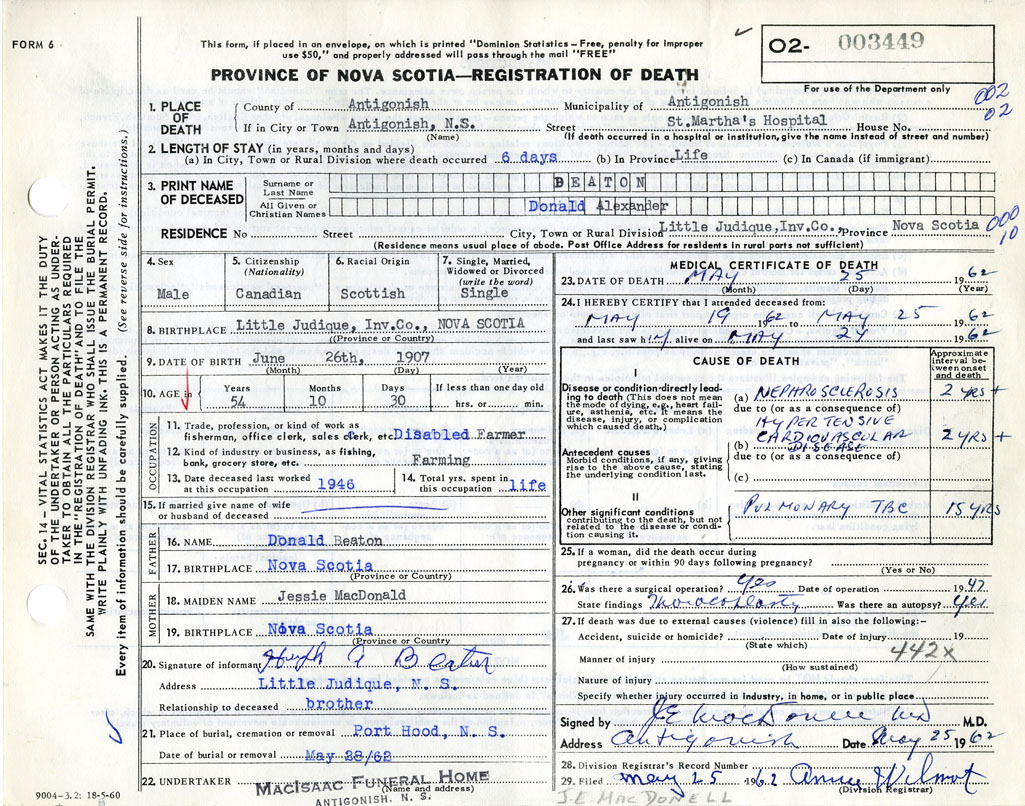 FORM 6
This form, if placed in an envelope, on which is printed "Dominion Statistics – Free, penalty for improper
use $50," and properly addressed will pass through the mail "FREE"
PROVINCE OF NOVA SCOTIA—REGISTRATION OF DEATH
O2- 003449
For use of the Department only
002
02
1. PLACE OF DEATH
County of Antigonish Municipality of Antigonish
If in City or Town Antigonish, N.S. Street St.Martha's Hospital House No.
(Name) (If death occurred in a hospital or institution, give the name instead of street and number)
2. LENGTH OF STAY (in years, months and days)
(a) In City, Town or Rural Division where death occurred 6 days (b) In Province Life (c) In Canada (if immigrant)
3. PRINT NAME OF DECEASED
Surname or Last Name BEATON
All Given or Christian Names Donald Alexander
RESIDENCE No Street City, Town or Rural Division Little Judique,Inv.Co., Province Nova Scotia
000
10
(Residence means usual place of abode. Post Office Address for residents in rural parts not sufficient)
4. Sex
Male
5. Citizenship
(Nationality)
Canadian
6. Racial Origin
Scottish
7. Single, Married,
Widowed or Divorced
(write the word)
Single
8. BIRTHPLACE Little Judique, Inv.Co., NOVA SCOTIA
((Province or Country)
9. DATE OF BIRTH June 26th, 1907
(Month) (Day) (Year)
10. AGE in
Years Months Days If less than one day old
54 10 30 hrs. or min.
OCCUPATION
11. Trade, profession, or kind of work as
fisherman, office clerk, sales clerk, etc Disabled Farmer
12. Kind of industry or business, as fishing,
bank, grocery store, etc. Farming
13. Date deceased last worked
at this occupation 1946
14. Total yrs. spent in
this occupation life
15. If married give name of wife
or husband of deceased
FATHER
16. NAME Donald Beaton
17. BIRTHPLACE Nova Scotia
(Province or Country)
MOTHER
18. MAIDEN NAME Jessie MacDonald
19. BIRTHPLACE Nova Scotia
(Province or Country
20. Signature of informant Hugh A Beaton
Address Little Judique, N. S.
Relationship to deceased brother
21. Place of burial, cremation or removal Port Hood, N. S.
Date of burial or removal May 28/62
22. UNDERTAKER MacIsaac Funeral Home
(Name and address)
ANTIGONISH, N. S.
MEDICAL CERTIFICATE OF DEATH
23. DATE OF DEATH MAY 25 1962
(Month) (Day) (Year)
24. I HEREBY CERTIFY that I attended deceased from:
MAY 19 1962 to MAY 25 1962
and last saw him alive on MAY 24 1962
CAUSE OF DEATH
Approximate
interval between onset
and death
I
Disease or condition directly leading to death (This does not mean
the mode of dying, e.g., heart failure, asthenia, etc. It means the
disease, injury, or complication
which caused death.)
(a) NEPHROSCLEROSIS 2 yrs +
due to (or as a consequence of)
HYPERTENSIVE
(b) CARDIOVASCULAR DISEASE 2 YRS +
due to (or as a consequence of)
(c)
Antecedent causes
Morbid conditions, if any, giving
rise to the above cause, stating
the underlying condition last.
II
Other significant conditions
contributing to the death, but not
related to the disease or condition causing it.
PULMONARY TBC 15 YRS
25. If a woman, did the death occur during
pregnancy or within 90 days following pregnancy?
(Yes or No)
26. Was there a surgical operation? Yes Date of operation 1947
State findings Thoracoplasty Was there an autopsy? Yes
27. If death was due to external causes (violence) fill in also the following:-
Accident, suicide or homicide? Date of injury 19
(State which)
442x
Manner of injury
(How sustained)
Nature of injury
Specify whether injury occurred in Industry, in home, or in public place
Signed by J E MacDonell MD M.D.
Address Antigonish Date May 25 1962
28. Division Registrar's Record Number
29. Filed May 25 1962 Annie Wilmot
(Division Registrar)
J.E. MACDONELL
SEC. 14 – VITAL STATISTICS ACT MAKES IT THE DUTY
OF THE UNDERTAKER OR PERSON ACTING AS UNDERTAKER TO OBTAIN ALL THE PARTICULARS REQUIRED
IN THE "REGISTRATION OF DEATH" AND TO FILE THE
SAME WITH THE DIVISION REGISTRAR WHO SHALL ISSUE THE BURIAL PERMIT.
WRITE PLAINLY WITH UNFADING INK. THIS IS A PERMANENT RECORD.
Every item of information should be carefully supplied. (See reverse side for instructions.)
9004-3.2: 18-5-60